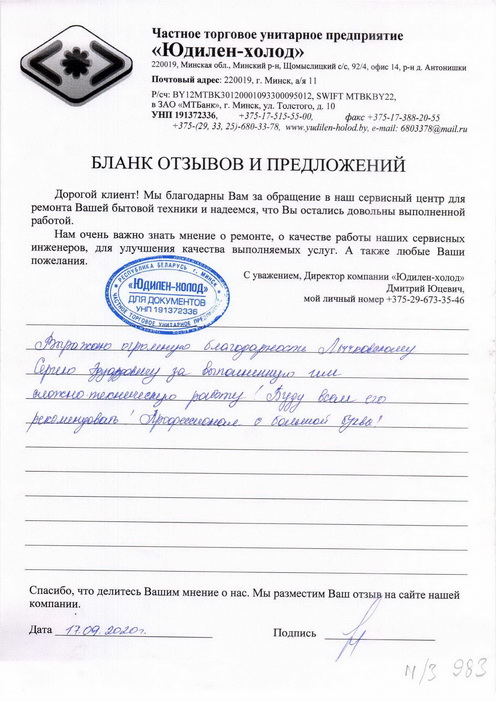 Частное торговое унитарное предприятие
«Юдилен-холод»
220019, Минская обл., Минский р-н, Щомыслицкий с/с, 92/4, офис 14, р-н д. Антонишки
Почтовый адрес: 220019, г. Минск, а/я 11
Р/сч: BY12MTBK30120001093300095012, SWIFT MTBKBY22,
в ЗАО «МТБанк», г. Минск, ул. Толстого, д. 10
УНП 191372336, +375-17-515-55-00, факс +375-17-388-20-55
+375-(29, 33, 25)-680-33-78, www.yudilen-holod.by, e-mail: 6803378@mail.ru
БЛАНК ОТЗЫВОВ И ПРЕДЛОЖЕНИЙ
Дорогой клиент! Мы благодарны Вам за обращение в наш сервисный центр для
ремонта Вашей бытовой техники и надеемся, что Вы остались довольны выполненной
работой.
Нам очень важно знать мнение о ремонте, о качестве работы наших сервисных
инженеров, для улучшения качества выполняемых услуг. А также любые Ваши
пожелания.
С уважением, Директор компании «Юдилен-холод»
Дмитрий Юцевич,
мой личный номер +375-29-673-35-46
РЕСПУБЛИКА БЕЛАРУСЬ г. МИНСК
«ЮДИЛЕН-ХОЛОД»
ДЛЯ ДОКУМЕНТОВ
УНП 191372336
ЧАСТНОЕ ТОРГОВОЕ УНИТАРНОЕ ПРЕДПРИЯТИЕ
Выражаю огромную благодарность
Сергею за выполненную им
сложно-техническую работу! Буду всем его
рекомендовать! Профессионал с большой буквы!
Спасибо, что делитесь Вашим мнение о нас. Мы разместим Ваш отзыв на сайте нашей
компании.
Дата 17.09.2020г. Подпись
м/з 983